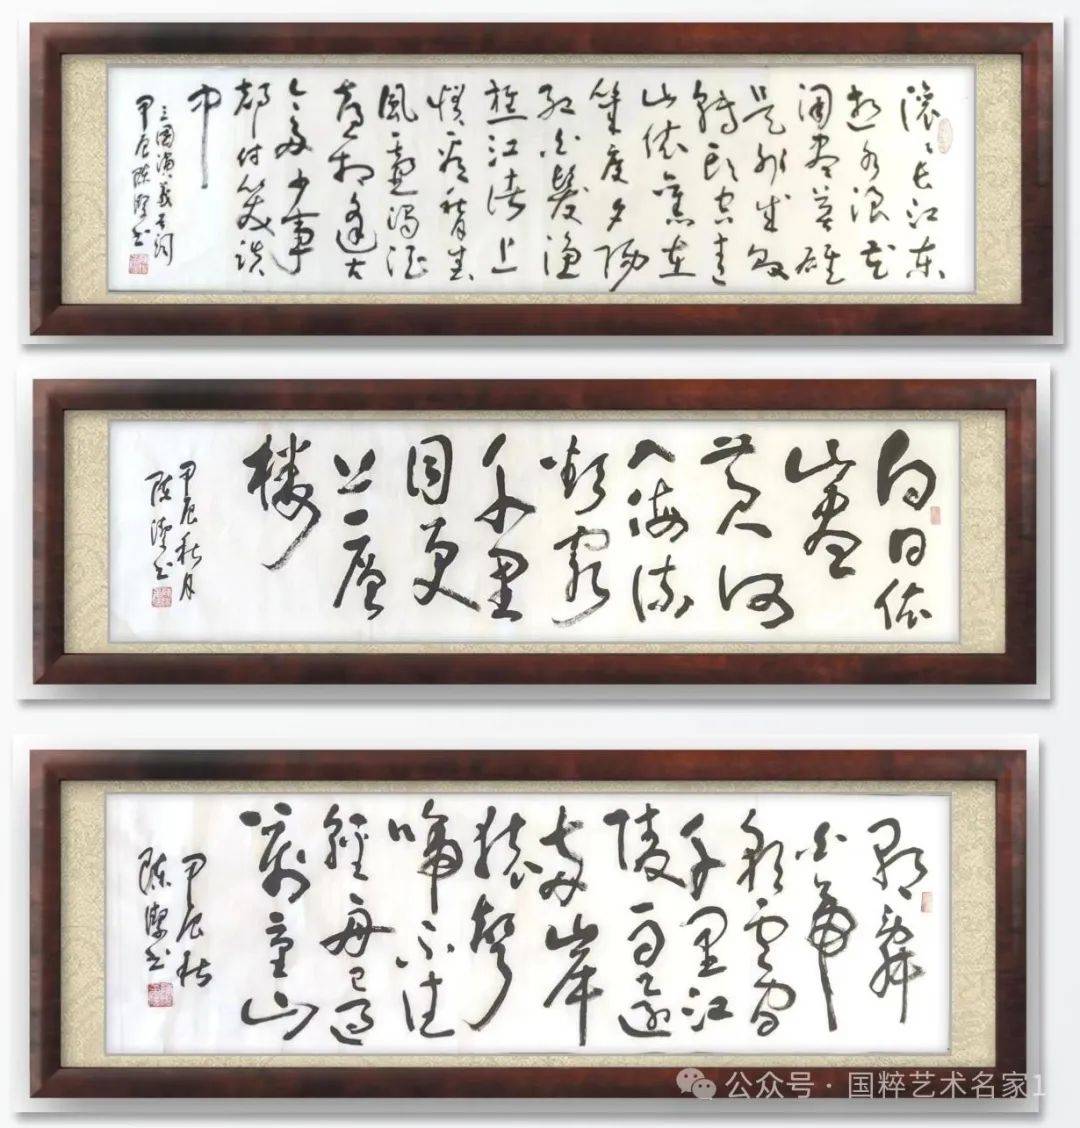 滚〻长江东
逝水浪花
淘尽英雄
是非成败
转头空青
山依旧在
几度夕陽
红白髮渔
樵江渚上
惯看秋月春
風一壶濁酒
喜相逢古
今多少事
都付笑谈
中
三國演義
甲辰陈潔书
白日依
山盡
黄河
入海流
欲窮
千里
目更
上一層
楼
甲辰秋月
陈潔书
朝辞
白帝
彩雲间
千里江
陵一日還
两岸
猿聲
啼不住
轻舟已过
萬重山
甲辰秋
陈潔书
公众号·国粹艺术名家1